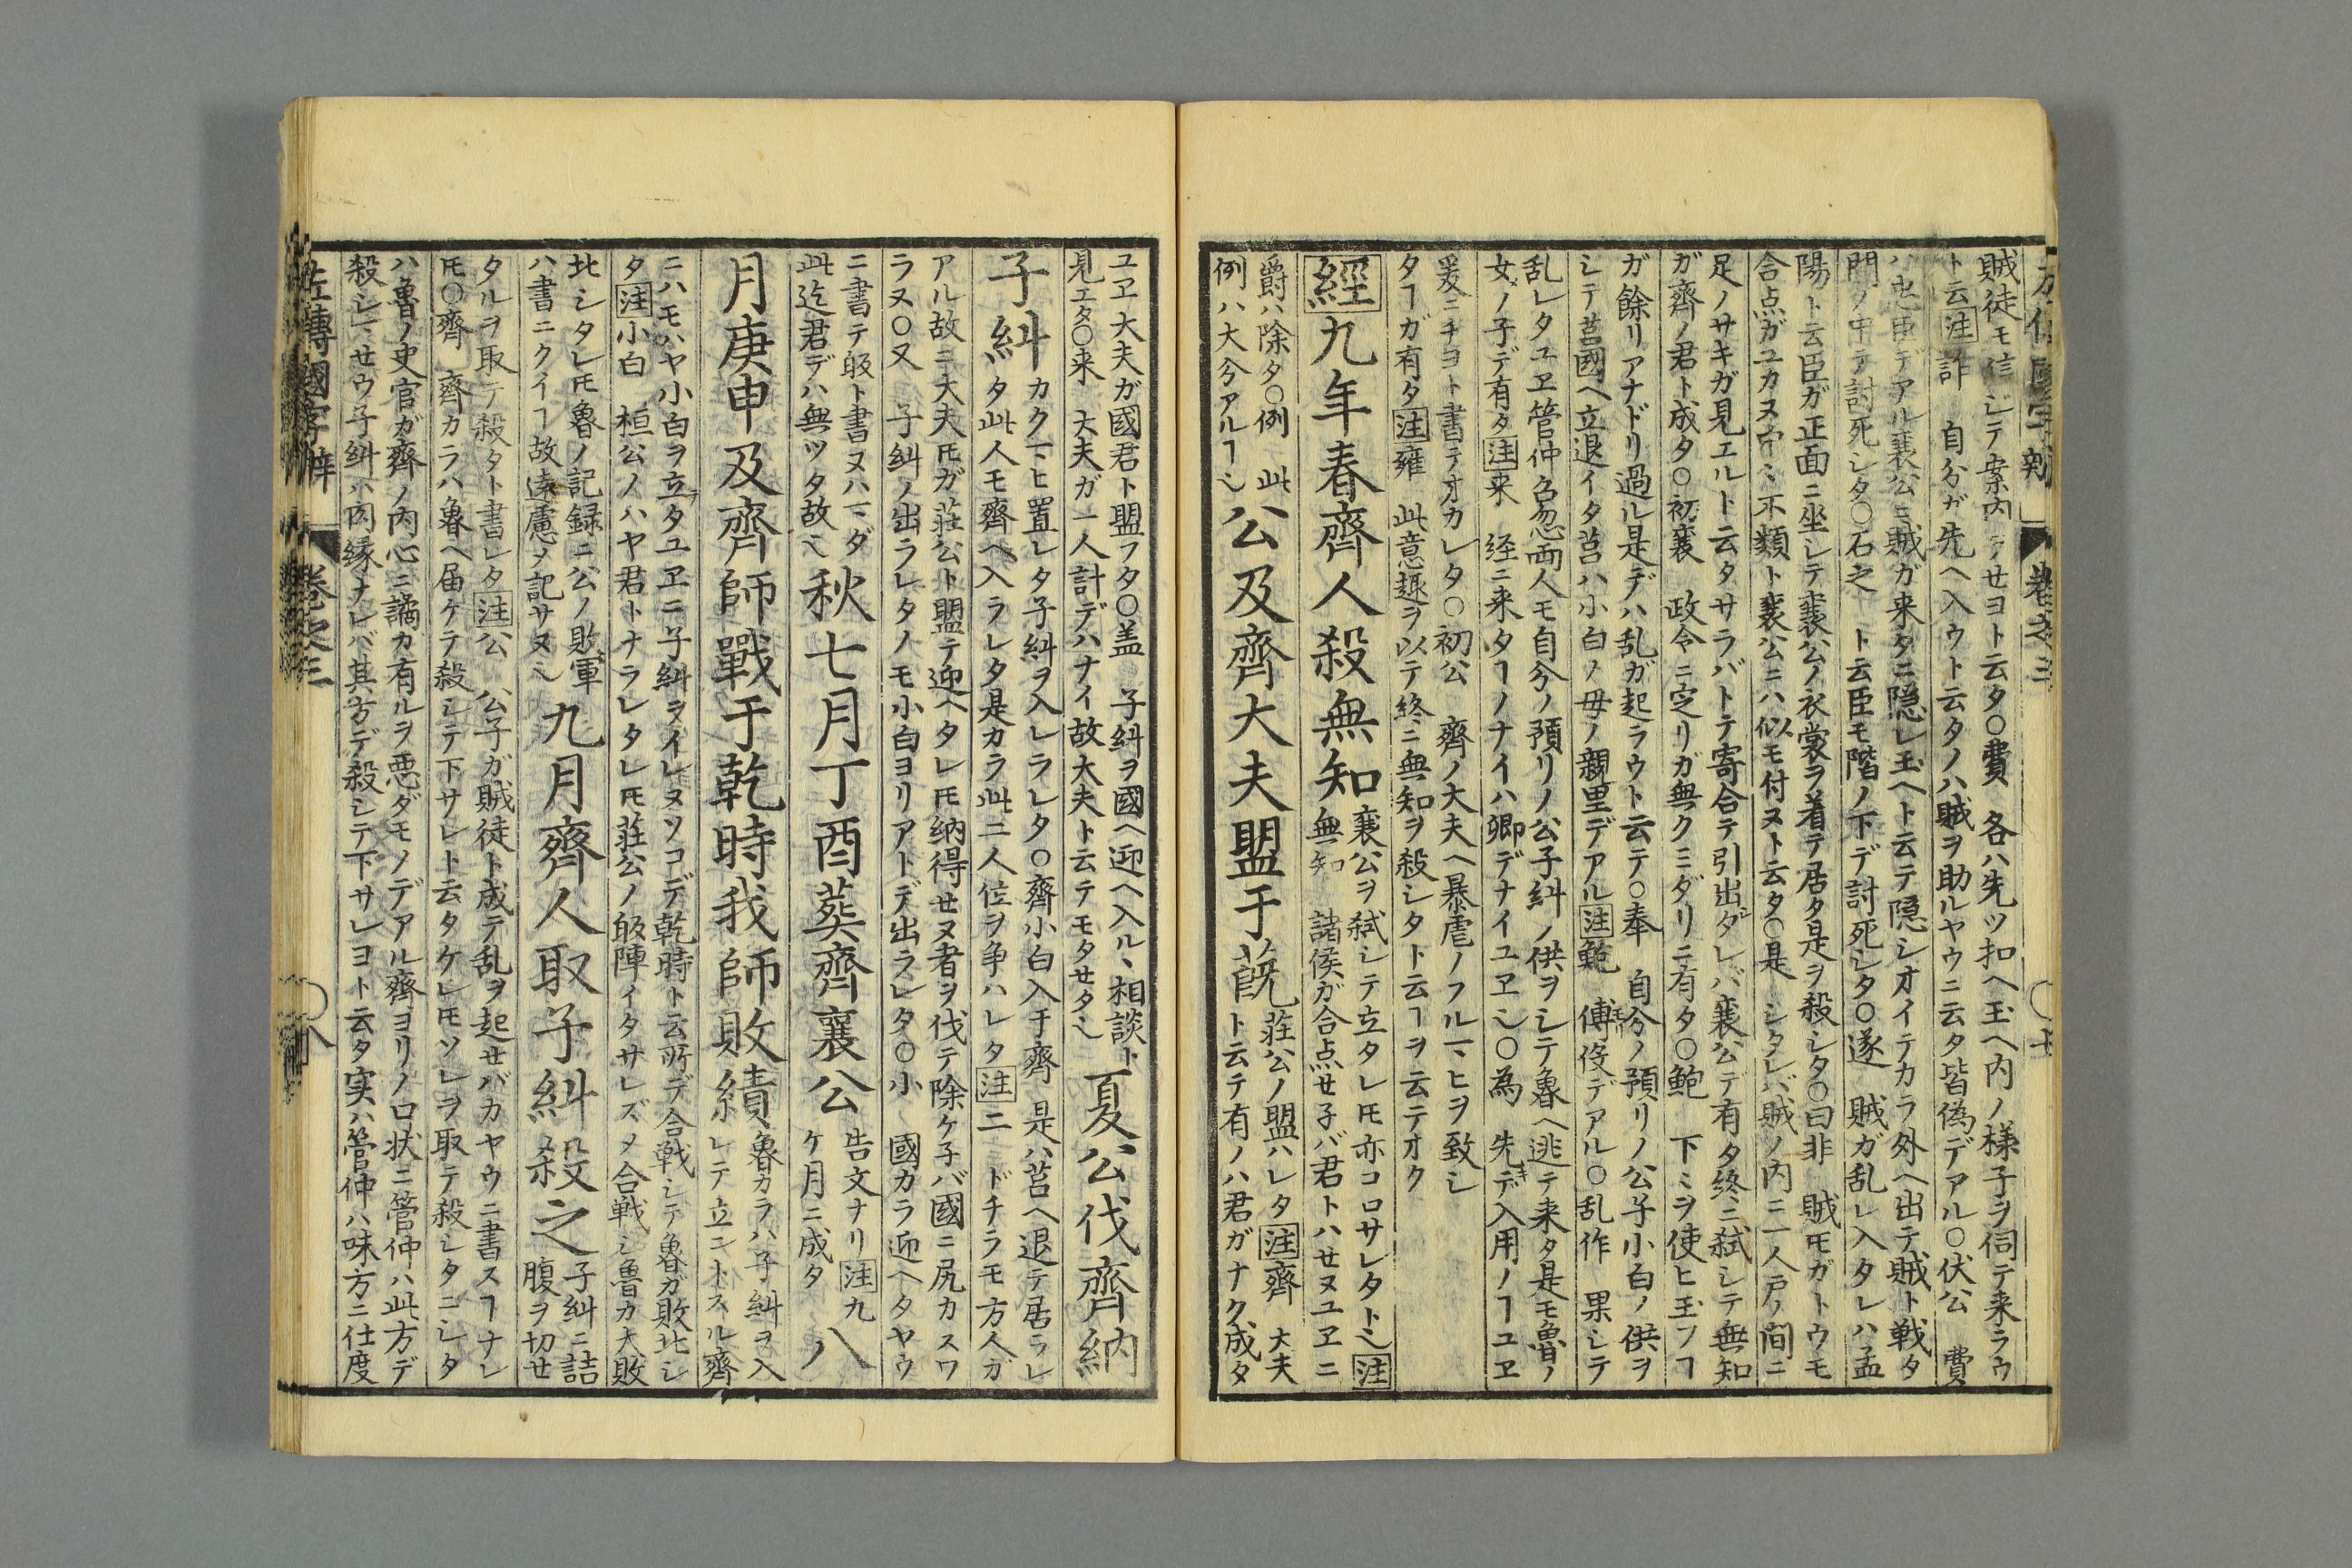 賊徒モ信ジテ案内ヲセヨト云タ〇費　各ハ先ツ扣ヘ玉ヘ内ノ様子ヲ伺テ来ラウ
ト云注詐　自分ガ先ヘ入ウト云タノハ賊ヲ助ルヤウニ云タ皆偽デアル〇伏公　費
ハ忠臣デアル襄公ニ賊ガ来タニ隠レ玉ヘト云テ隠シオイテカラ外ヘ出テ賊ト戦タ
門ノ中テ討死シタ〇石之　ト云臣モ階ノ下デ討死シタ〇遂　賊ガ乱レ入タレハ孟
陽ト云臣ガ正面ニ坐シテ襄公ノ衣裳ヲ着テ居タ是ヲ殺シタ〇曰非　賊𪜈ガトウモ
合点ガユカヌ　不類ト襄公ニハ似モ付ヌト云タ〇是　シタレバ賊ノ内ニ一人戸ノ間ニ
足ノサキガ見エルト云タサラバトテ寄合テ引出ダレバ襄公デ有タ終ニ弑シテ無知
ガ齊ノ君ト成タ〇初襄　政令ニ定リガ無クミダリニ有タ〇鮑　下ミヲ使ヒ玉フヿ
ガ餘リアナドリ過ル是デハ乱ガ起ラウト云テ〇奉　自分ノ預リノ公子小白ノ供ヲ
シテ莒國ヘ立退イタ莒ハ小白ノ母ノ親里デアル注鮑　傅役デアル〇乱作　果シテ
乱レタユヱ管仲召忽両人モ自分ノ預リノ公子糾ノ供ヲシテ魯ヘ逃テ来タ是モ魯ノ
女ノ子デ有タ注来　経ニ来タヿノナイハ卿デナイユヱ也〇為　先デ入用ノヿユヱ
爰ニチヨト書テオカレタ〇初公　齊ノ大夫ヘ暴虐ノフルマヒヲ致シ
タヿガ有タ注雍　此意趣ヲ以テ終ニ無知ヲ殺シタト云ヿヲ云テオク
經九年春齊人殺無知　襄公ヲ弑シテ立タレ𪜈亦コロサレタト也注
無知　諸侯ガ合点セ子バ君トハセヌユヱニ
爵ハ除タ〇例　此
例ハ大分アルヿ也　公及齊大夫盟于蔇　荘公ノ盟ハレタ注齊　大夫
ト云テ有ノハ君ガナク成タ
ユヱ大夫ガ國君ト盟フタ〇盖　子糾ヲ國ヘ迎ヘ入ルヽ相談ト
見エタ〇来　大夫ガ一人計デハナイ故大夫ト云テモタセタ也　夏公伐齊納
子糾　カクマヒ置レタ子糾ヲ入レラレタ〇齊小白入于齊　是ハ莒ヘ退テ居ラレ
タ此人モ齊ヘ入ラレタ是カラ此二人位ヲ争ハレタ注二　ドチラモ方人ガ
アル故ニ大夫𪜈ガ荘公ト盟テ迎ヘタレ𪜈納得セヌ者ヲ伐テ除ケ子バ國ニ尻カスワ
ラヌ〇又　子糾ノ出ラレタノモ小白ヨリアトデ出ラレタ〇小　國カラ迎ヘタヤウ
ニ書テ皈ト書ヌハマダ
此迄君デハ無ツタ故也　秋七月丁酉葬齊襄公　告文ナリ注九
ケ月ニ成タ　八
月庚申及齊師戰于乾時我師敗績　魯カラハ子糾ヲ入
レテ立ントスル齊
ニハモハヤ小白ヲ立タユヱニ子糾ヲイレヌソコデ乾時ト云所デ合戦シテ魯ガ敗北シ
タ注小白　桓公ノハヤ君トナラレタレ𪜈荘公ノ皈陣イタサレズメ合戦シ魯カ大敗
北シタレ𪜈魯ノ記録ニ公ノ敗軍
ハ書ニクイヿ故遠慮メ記サヌ也　九月齊人取子糾殺之　子糾ニ詰
腹ヲ切セ
タルヲ取テ殺タト書レタ注公　公子ガ賊徒ト成テ乱ヲ起セバカヤウニ書スヿナレ
𪜈〇齊　齊カラハ魯ヘ届ケテ殺シテ下サレト云タケレ𪜈ソレヲ取テ殺シタニシタ
ハ魯ノ史官ガ齊ノ内心ニ譎カ有ルヲ悪ダモノデアル齊ヨリノ口状ニ管仲ハ此方デ
殺シマセウ子糾ハ肉縁ナレバ其方デ殺シテ下サレヨト云タ実ハ管仲ハ味方ニ仕度
左傳國字辯　卷之三